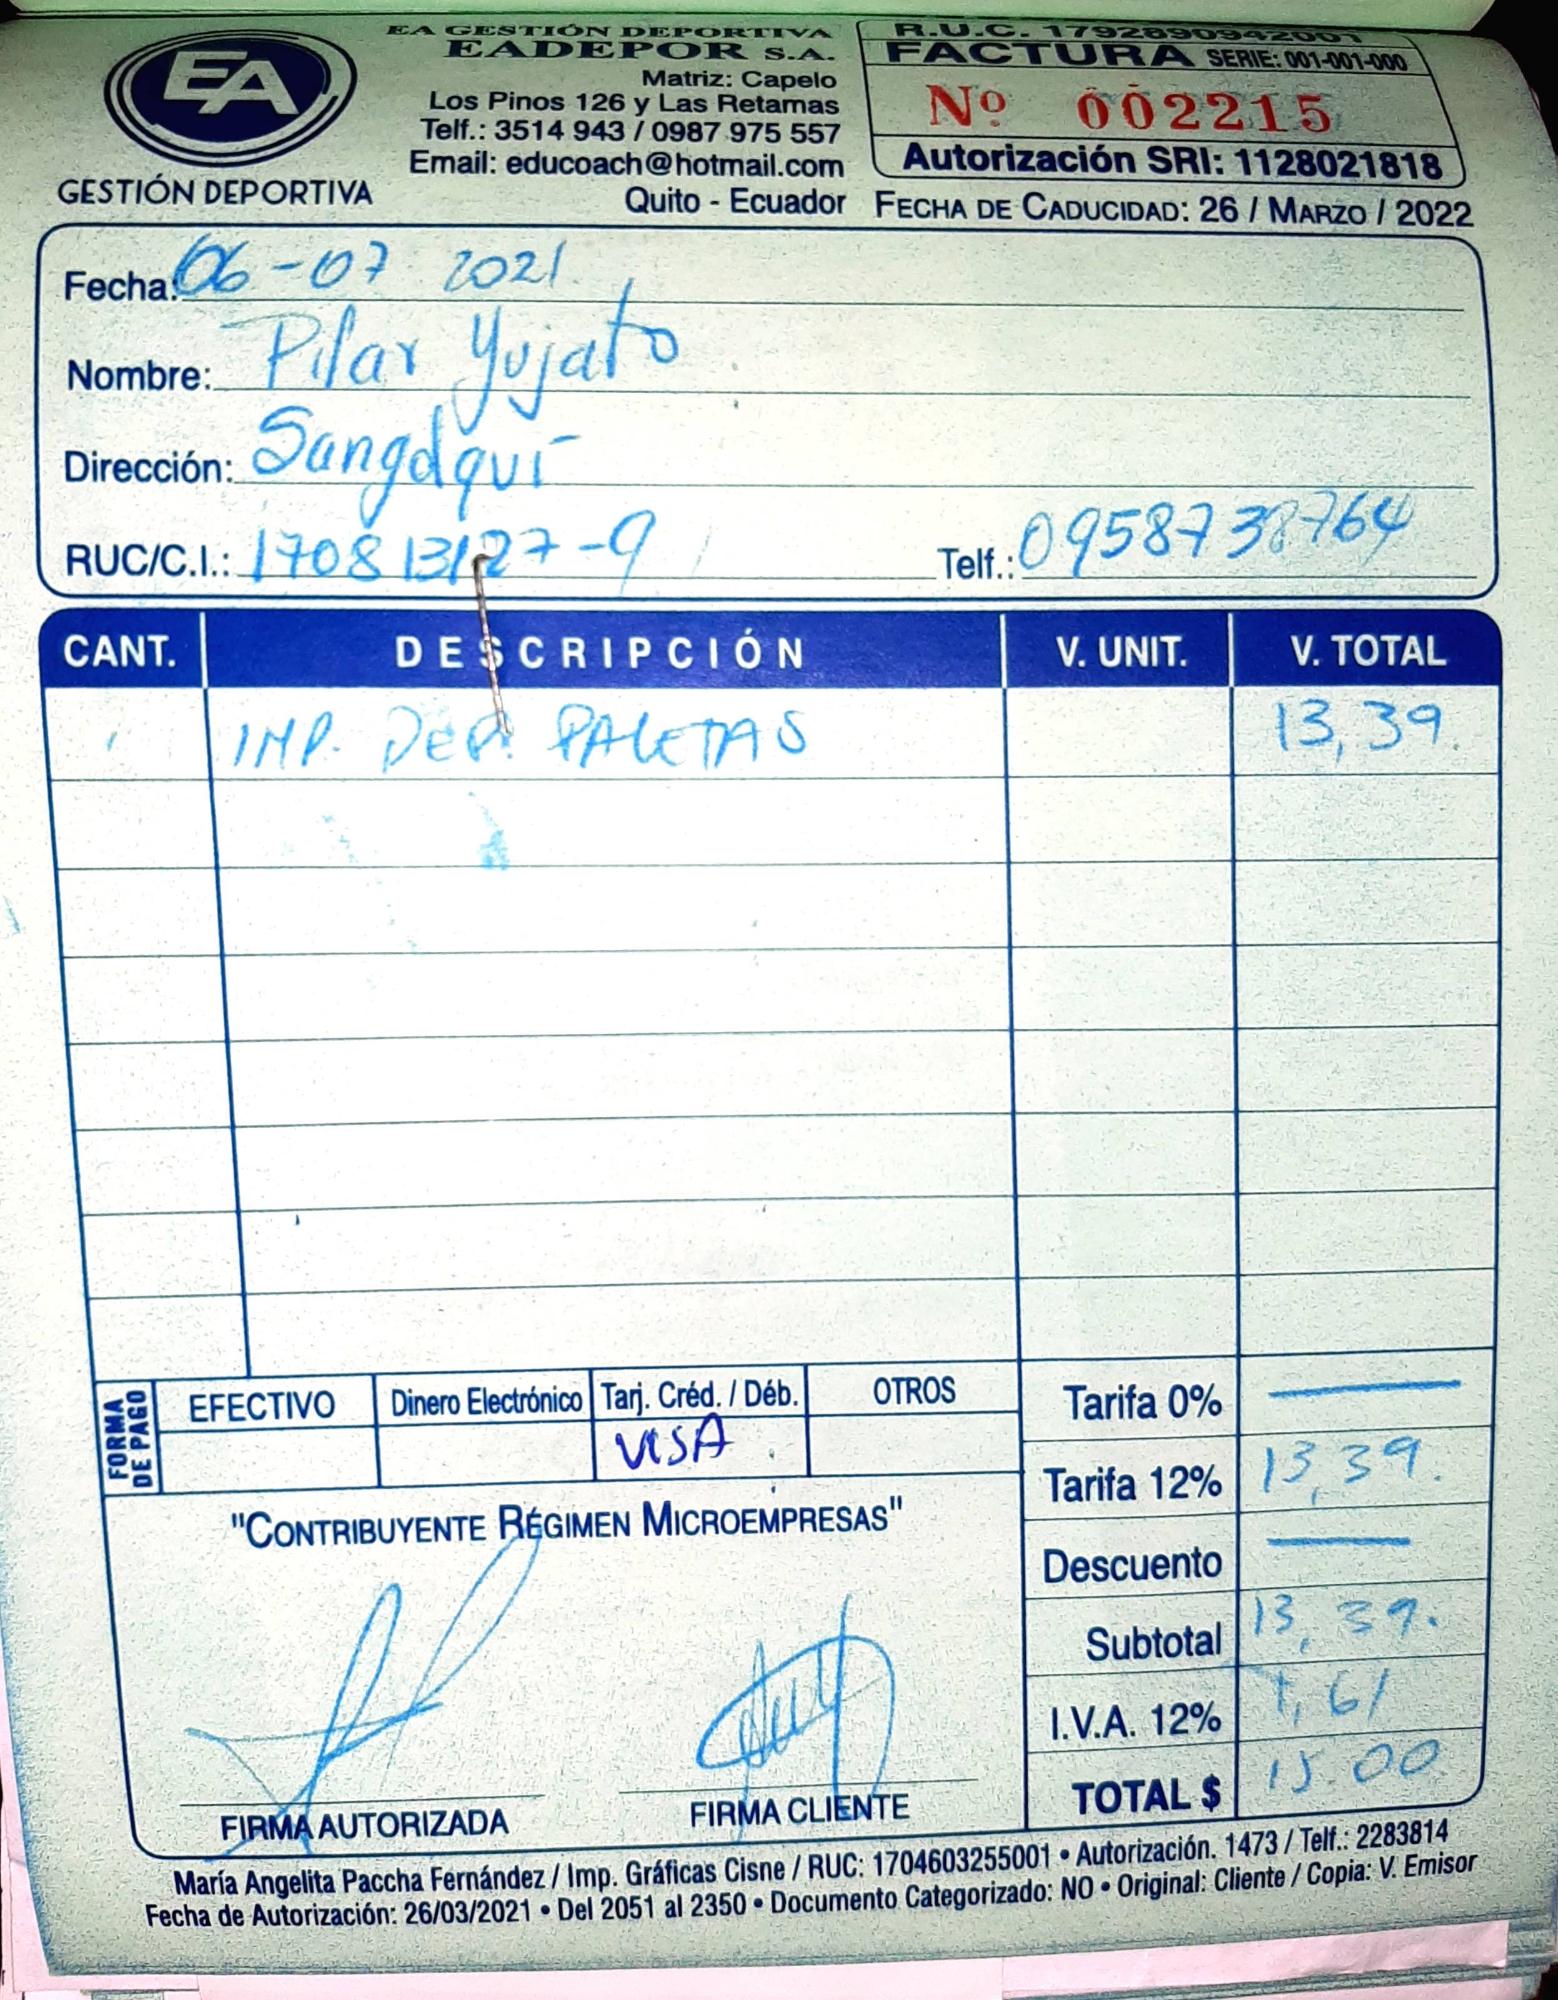 EA
GESTIÓN DEPORTIVA
EA GESTIÓN DEPORTIVA
EADEPOR S.A.
Matriz: Capelo
Los Pinos 126 y Las Retamas
Telf.: 3514 943 / 0987 975 557
Email: educoach@hotmail.com
Quito - Ecuador
R.U.C. 1792890942001
FACTURA SERIE: 001-001-000
Nº 002215
Autorización SRI: 1128021818
FECHA DE CADUCIDAD: 26 / MARZO / 2022
Fecha: 06-07 2021
Nombre: Pilar Yujato
Dirección: Sangolquí
RUC/C.I.: 170813127-9 Telf.: 0958738764
CANT. DESCRIPCIÓN V. UNIT. V. TOTAL
1 IMP. DEP. PALETAS 13,39.
FORMA DE PAGO
EFECTIVO Dinero Electrónico Tarj. Créd. / Déb. OTROS
VISA
Tarifa 0% —
Tarifa 12% 13,39.
Descuento —
Subtotal 13,39.
I.V.A. 12% 1,61
TOTAL $ 15.00
"CONTRIBUYENTE RÉGIMEN MICROEMPRESAS"
FIRMA AUTORIZADA FIRMA CLIENTE
María Angelita Paccha Fernández / Imp. Gráficas Cisne / RUC: 1704603255001 • Autorización. 1473 / Telf.: 2283814
Fecha de Autorización: 26/03/2021 • Del 2051 al 2350 • Documento Categorizado: NO • Original: Cliente / Copia: V. Emisor